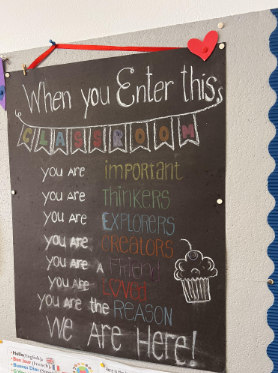 When you Enter this,
CLASSROOM
you are important
you are THINKERS
you are EXPLORERS
you are CREATORS
you are a Friend
you are Loved
you are the REASON
We Are Here!
Hello
Bon Jour
Buenos Dias